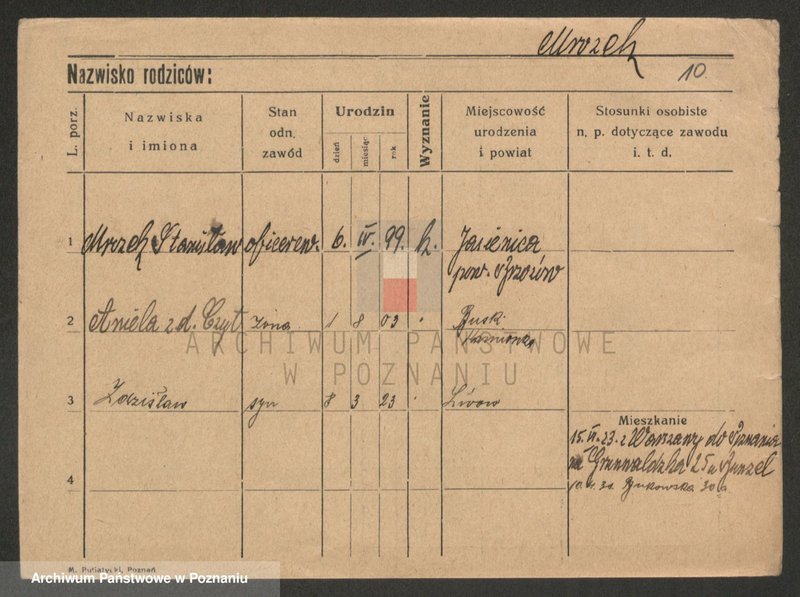 Mrozek
Nazwisko rodziców:
10
L. porz.
Nazwiska
i imiona
Stan
odn.
zawód
Urodzin
dzień
miesiąc
rok
Wyznanie
Miejscowość
urodzenia
i powiat
Stosunki osobiste
n. p. dotyczące zawodu
i. t. d.
1 Mrozek Stanisław oficer ew. 6. IV. 99. k. Jasienica
pow. Brzozów
2 Aniela z d. Czyt żona 1 8 03 " Busk
Kamionka
ARCHIWUM PAŃSTWOWE
W POZNANIU
3 Zdzisław syn 8 3 23 " Lwow
Mieszkanie
15. VI. 23. z Warszawy do Poznania
Grunwaldzka 25 u
4
Bukowska 30
M. Putiatycki, Poznań
Archiwum Państwowe w Poznaniu